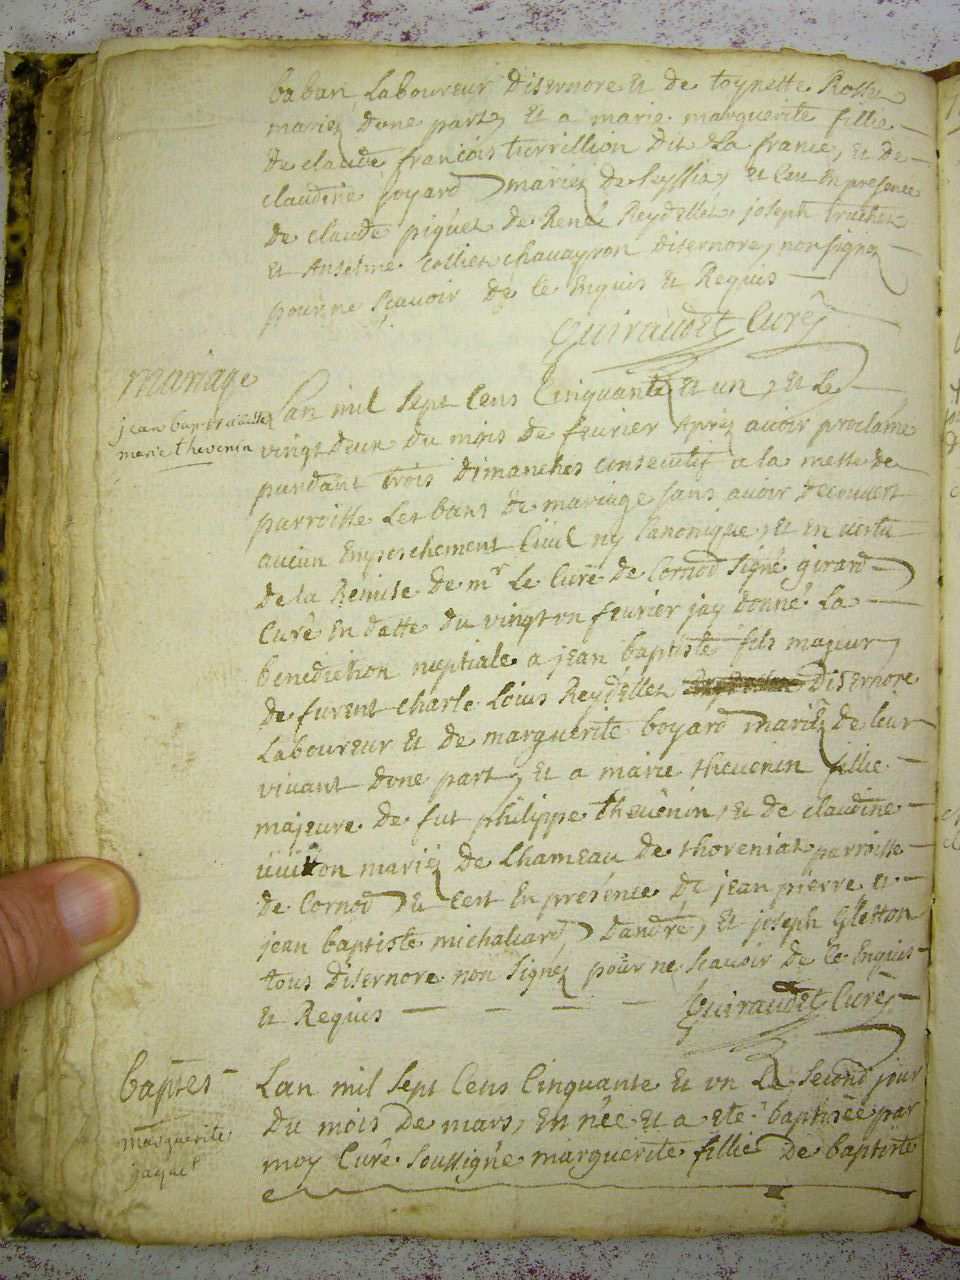 baban Laboureur disernore et de toynette Rosse
mariez done part, et a marie marguerite fillie
de claude francois turrillion dit La france, et de
claudine goyard mariez de leyssia, et ceu En presence
de claude piquet de René Reydellet joseph truchet
et Anselme collier chavayron disernore, non signez
pour ne scavoir de ce Enquis et Requis
Guiraudet Curé
mariage
jean baptiste reidellet
marie thevenin
Lan mil sept cens cinquante et un, et Le
vingt deux du mois de fevrier Aprez avoir proclamé
pandant trois dimanches consecutif a la messe de
parroisse Les bans de mariage sans avoir decouvert
aucun Empeschement Civil ny Canonique, et en vertu
de la Remise de mr Le Curé de Cornod signé girard
Curé En datte du vingt un fevrier jay donné La
benediction nuptiale a jean baptiste fils majeur
de furent charle Louis Reydellet disernore
Laboureur et de marguerite boyard mariez de leur
vivant done part, et a marie thevenin fillie
majeure de fut philippe thevenin, et de claudine
mariez de Lhameau de thoreniat parroisse
de Cornod et cest En presence de jean pierre et
jean baptiste michaliard, dandre, et joseph Gletton
tous disernore non signez pour ne scavoir de ce Enquis
et Requis
Guiraudet Curé
baptes
marguerite
jaquet
Lan mil sept cens cinquante et un Le second jour
du mois de mars, En née et a eté baptisée par
moy Curé soussigné marguerite fillie de baptiste